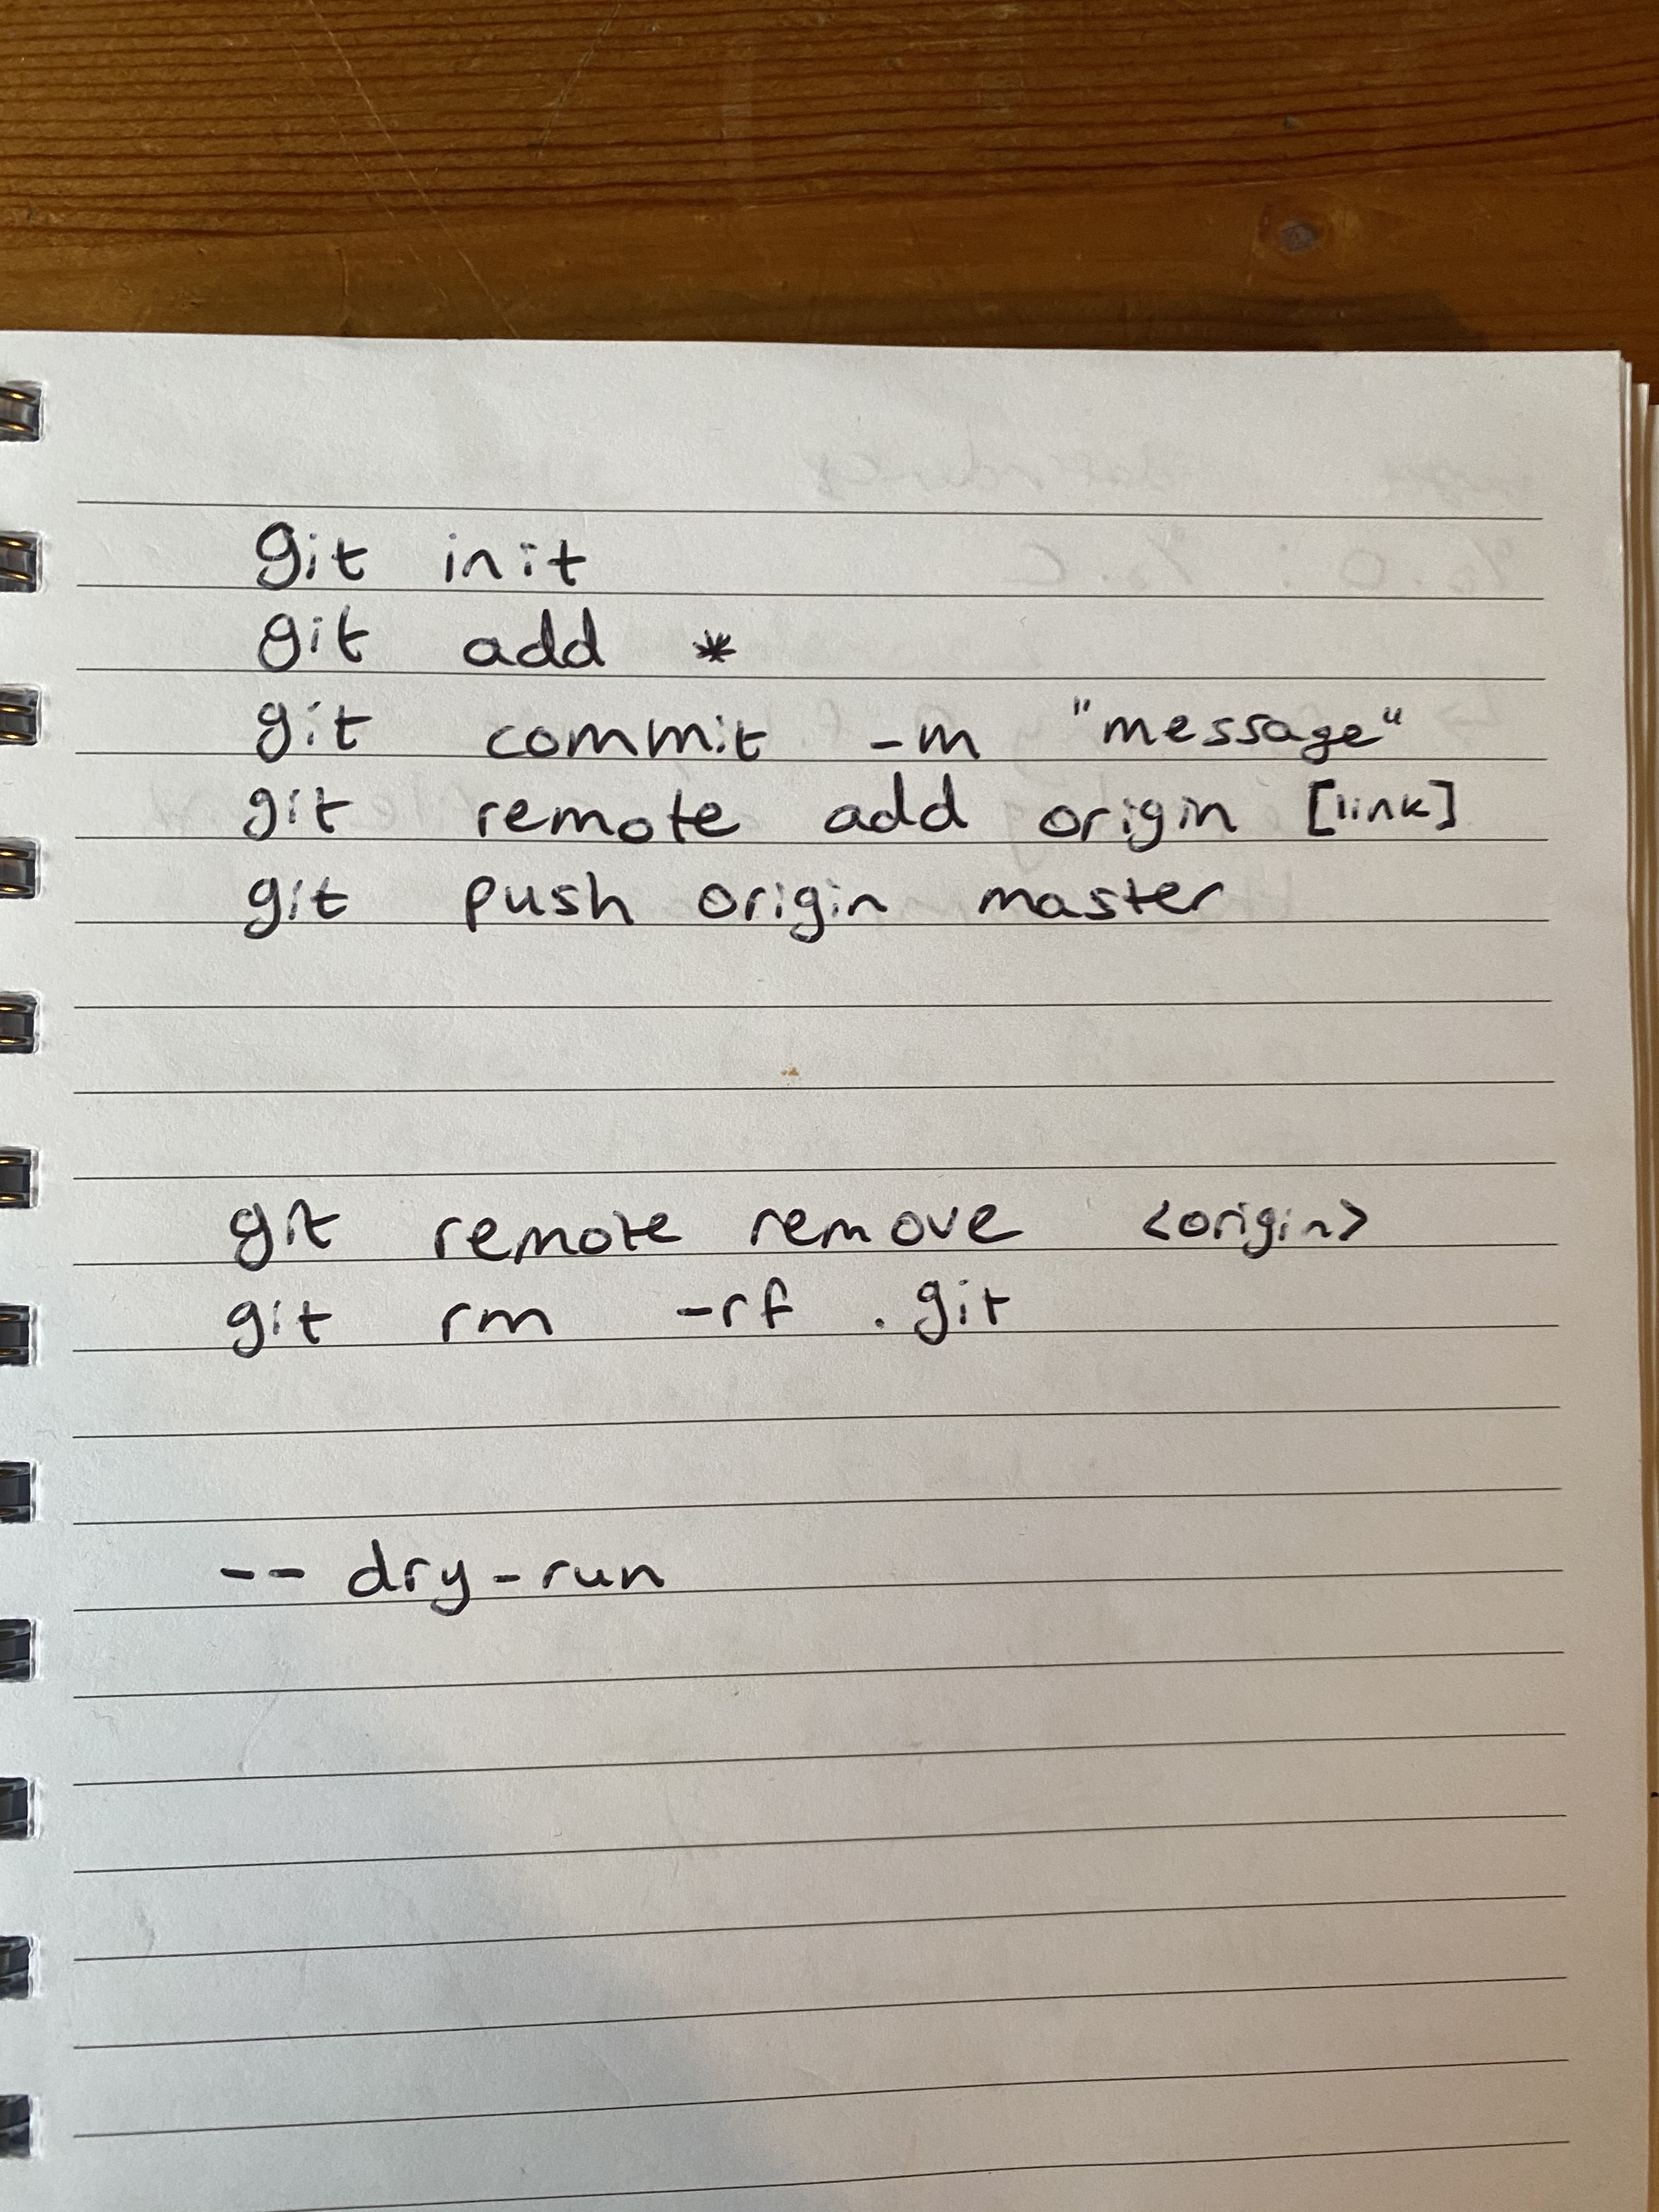 git init
git add *
git commit -m "message"
git remote add origin [link]
git push origin master
git remote remove <origin>
git rm -rf .git
-- dry-run